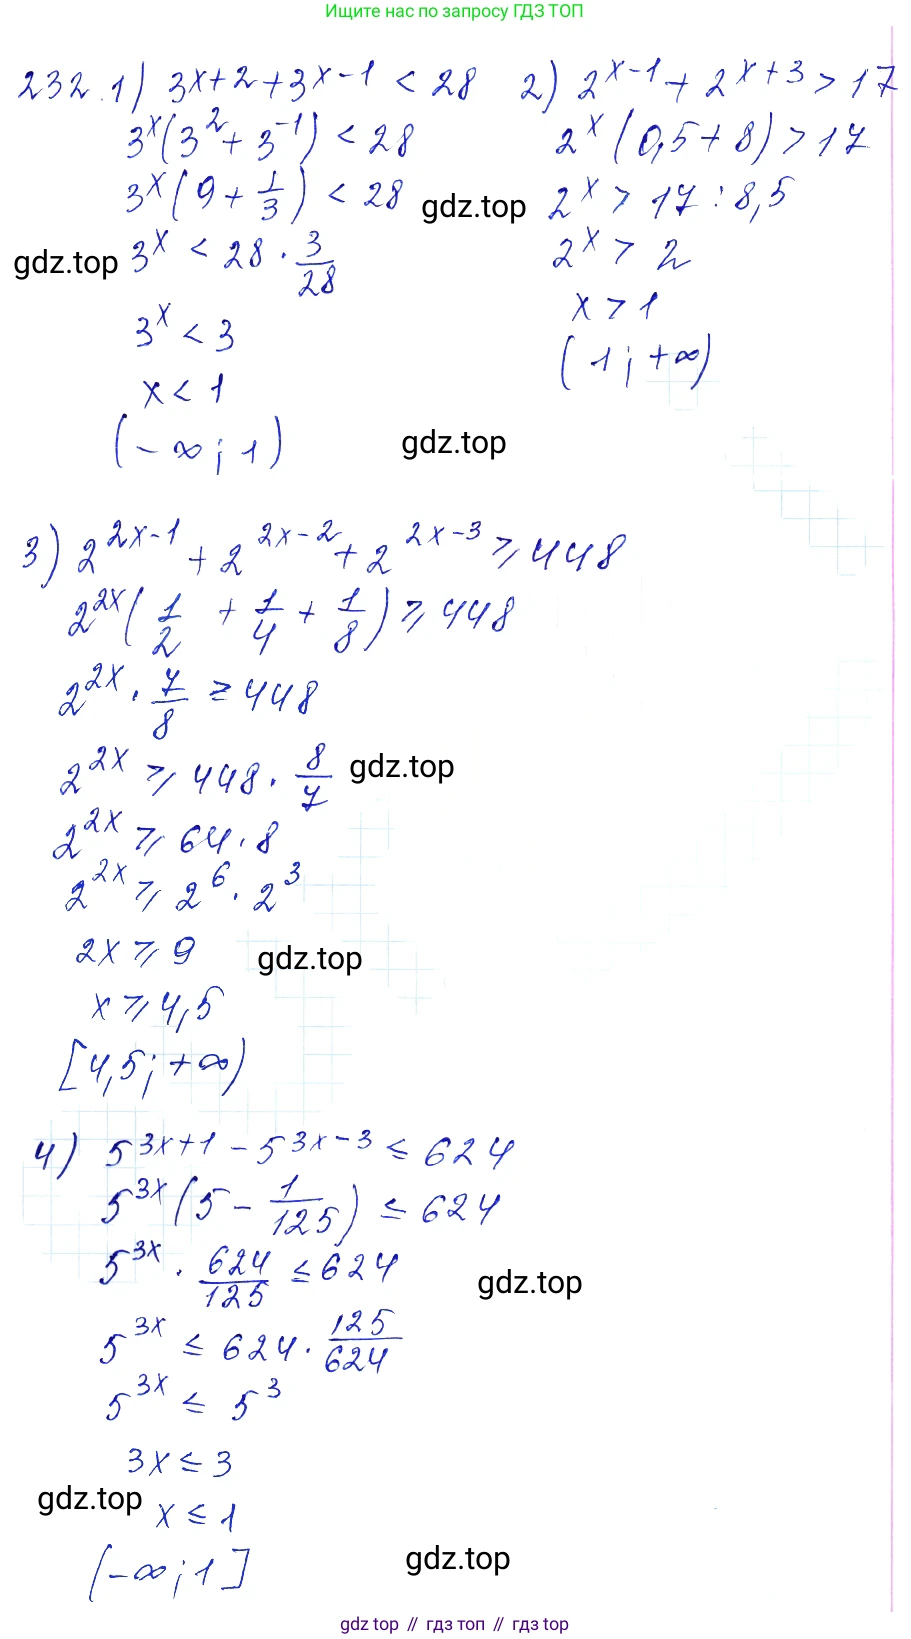 Ищите нас по запросу ГДЗ ТОП
232. 1) 3^{x+2} + 3^{x-1} < 28
3^x(3^2 + 3^{-1}) < 28
3^x(9 + 1/3) < 28
gdz.top
3^x < 28 · 3/28
3^x < 3
x < 1
(-∞; 1)
2) 2^{x-1} + 2^{x+3} > 17
2^x(0,5 + 8) > 17
gdz.top
2^x > 17 : 8,5
2^x > 2
x > 1
(1; +∞)
gdz.top
3) 2^{2x-1} + 2^{2x-2} + 2^{2x-3} ⩾ 448
2^{2x}(1/2 + 1/4 + 1/8) ⩾ 448
2^{2x} · 7/8 ≥ 448
2^{2x} ⩾ 448 · 8/7
gdz.top
2^{2x} ⩾ 64 · 8
2^{2x} ⩾ 2^6 · 2^3
2x ⩾ 9
gdz.top
x ⩾ 4,5
[4,5; +∞)
4) 5^{3x+1} - 5^{3x-3} ≤ 624
5^{3x}(5 - 1/125) ≤ 624
5^{3x} · 624/125 ≤ 624
gdz.top
5^{3x} ≤ 624 · 125/624
5^{3x} ≤ 5^3
3x ≤ 3
gdz.top
x ≤ 1
(-∞; 1]
gdz.top
gdz top // гдз топ // gdz top